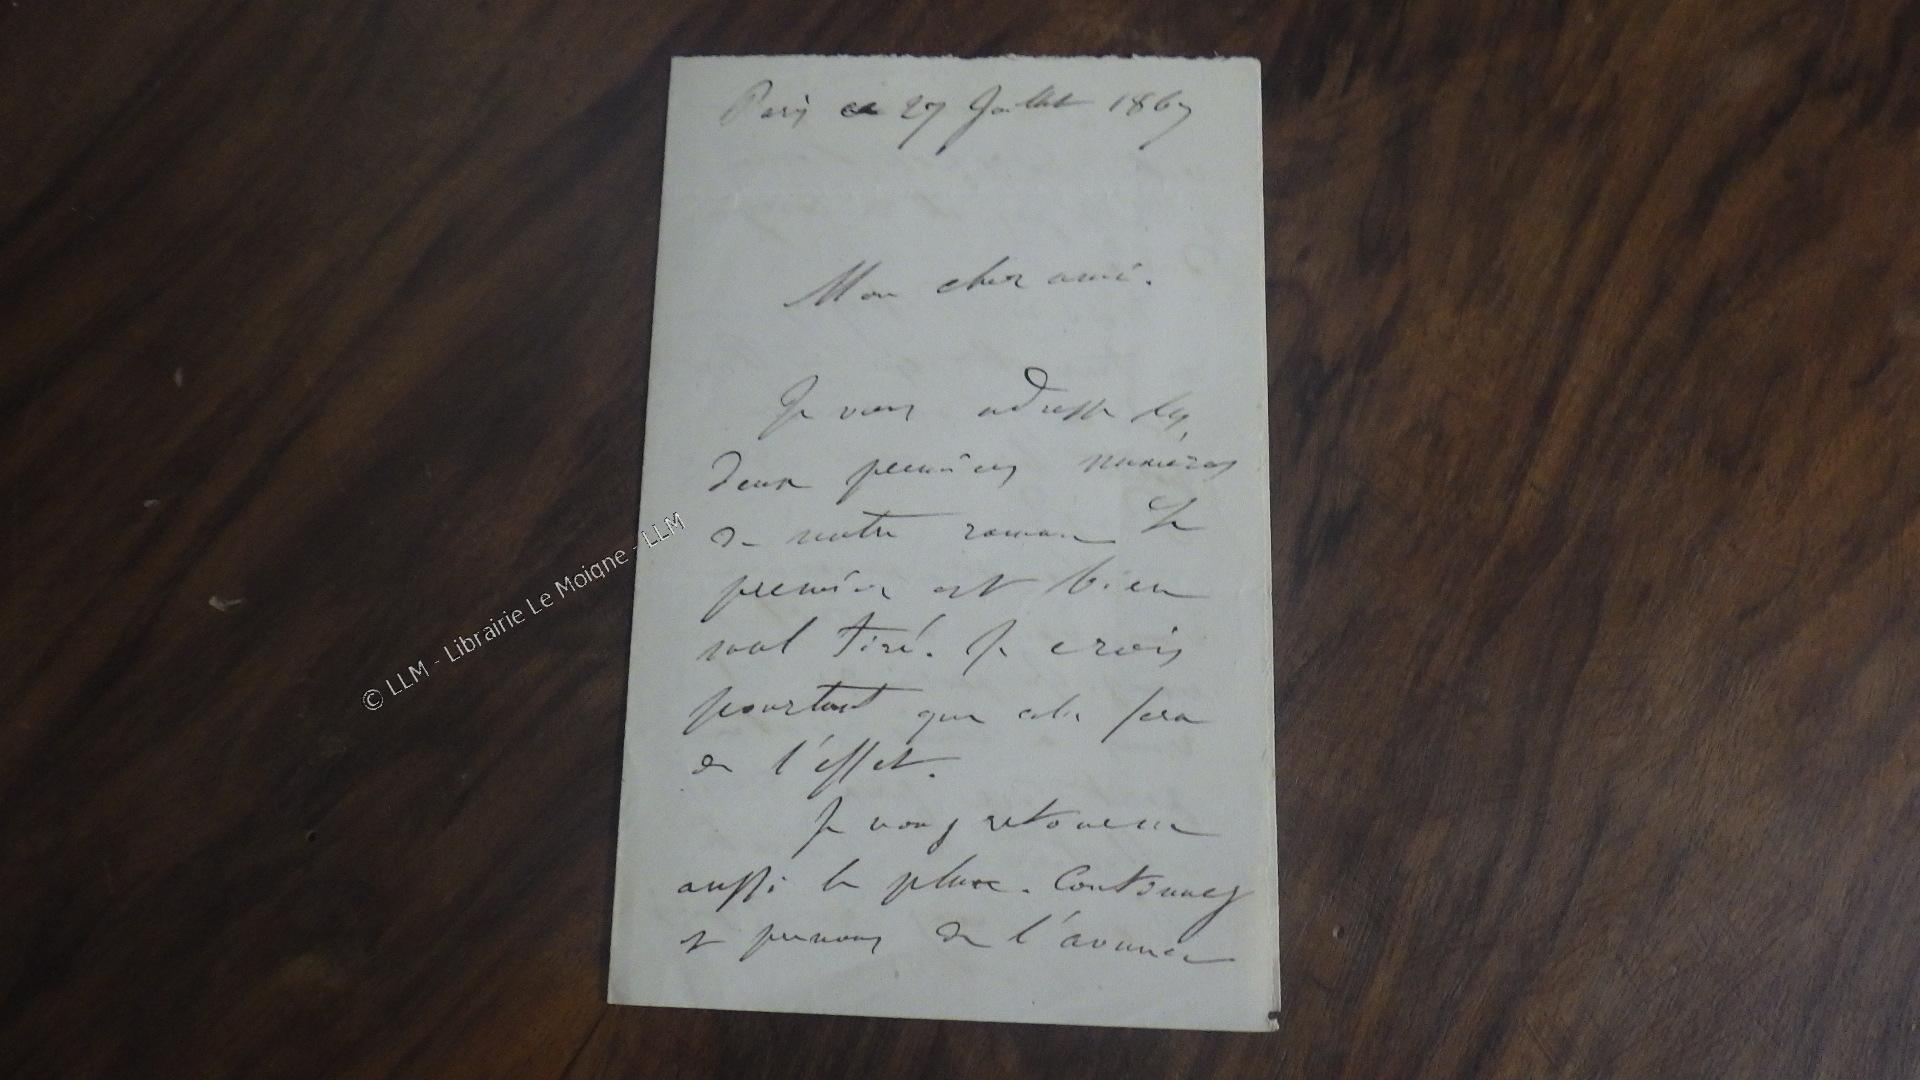 Paris ce 27 Juillet 1867
Mon cher ami.
Je vous adresse les
deux premiers numéros
de notre roman Le
premier est bien
mal tiré. Je crois
pourtant que cela fera
de l'effet.
Je vous retourne
aussi la place. Continuez
et prenons de l'avance
© LLM - Librairie Le Moigne - LLM